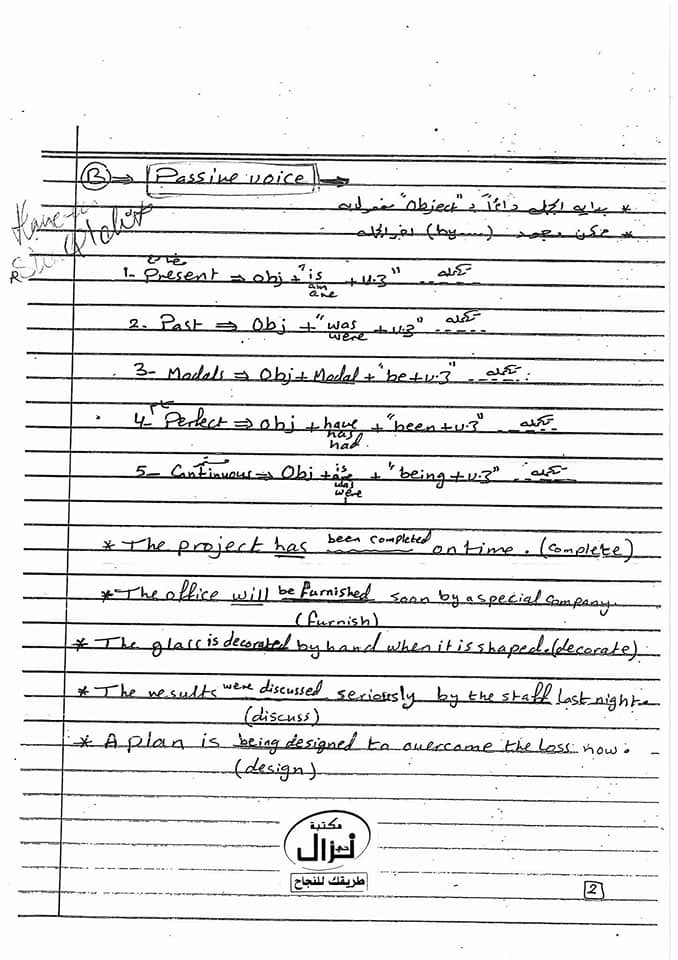 B → Passive voice →
* بداية الجملة دائماً بـ "Object" مفعول به
* ممكن وجود (by ......) اخر الجملة
1- Present ⇒ obj + "is am are + v.3" تكملة ------
2- Past ⇒ Obj + "was were + v.3" تكملة ------
3- Modals ⇒ Obj + Modal + "be + v.3" تكملة ------
4- Perfect ⇒ obj + have has had + "been + v.3" تكملة ------
5- Continuous ⇒ Obj + is are was were + "being + v.3" تكملة ------
* The project has been completed on time. (complete)
* The office will be furnished soon by a special company.
(furnish)
* The glass is decorated by hand when it is shaped. (decorate)
* The results were discussed seriously by the staff last night.
(discuss)
* A plan is being designed to overcome the loss now.
(design)
مكتبة
نزال
طريقك للنجاح
2